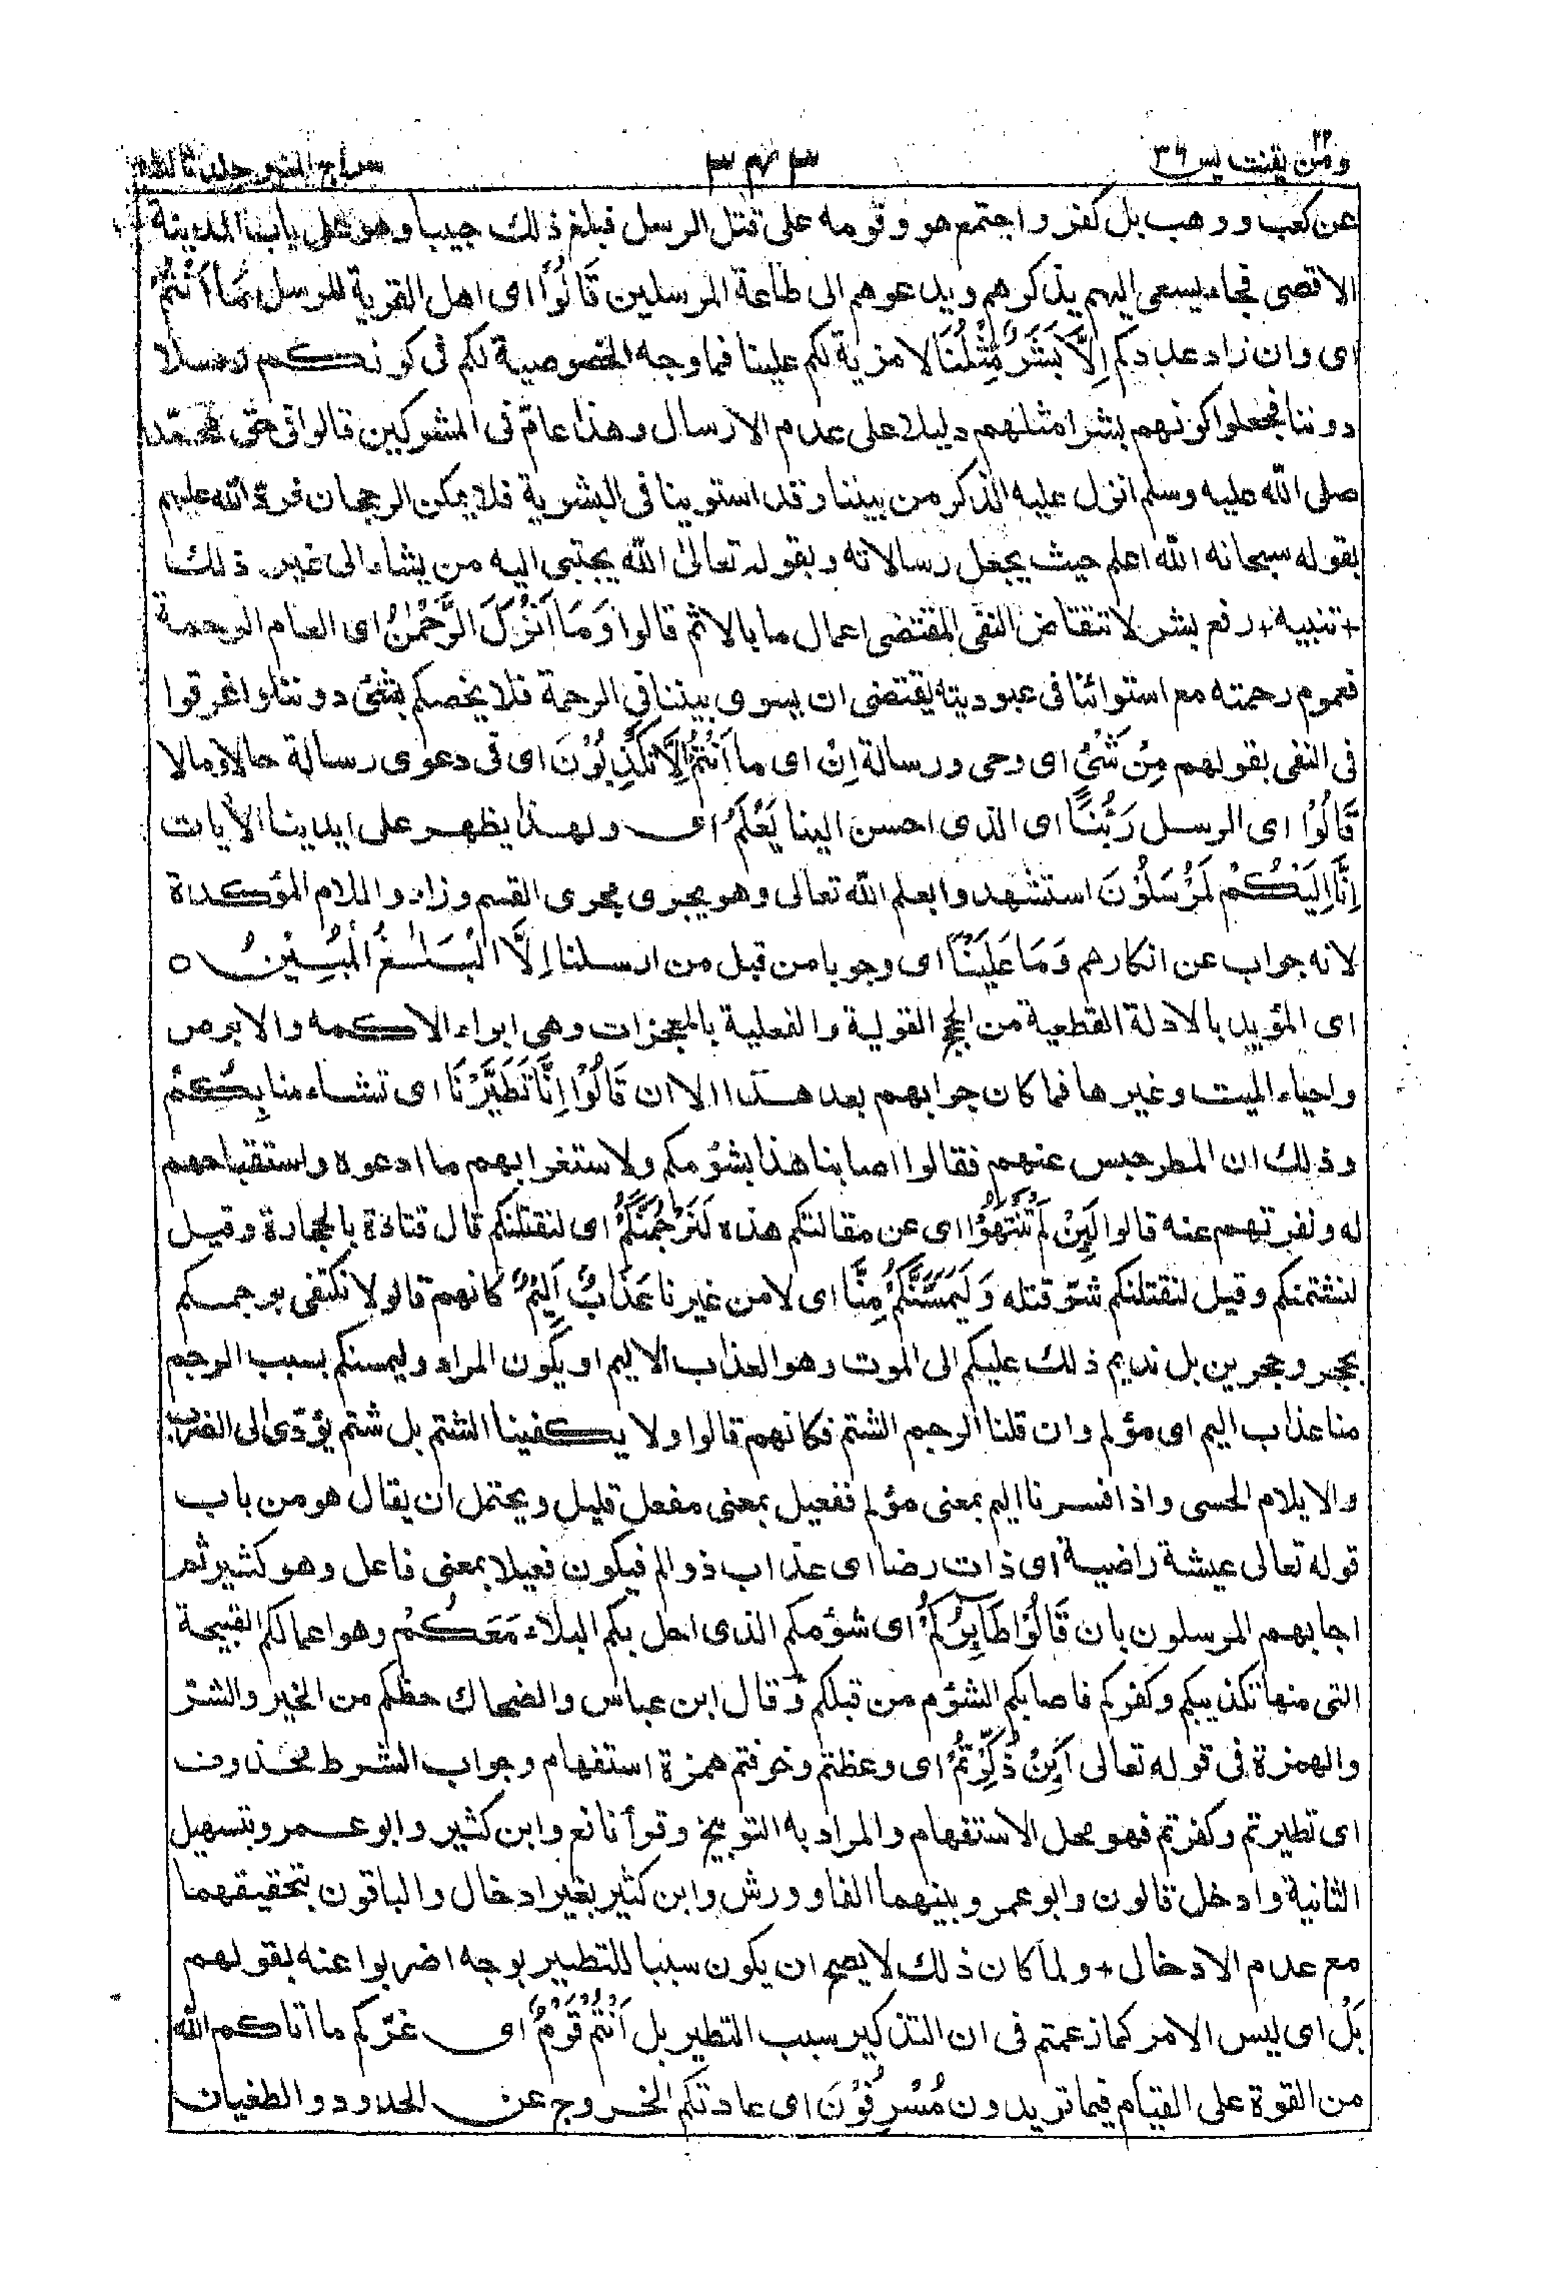 ومن يقنت ٢٢ يس ٣٦
٣٤٣
سراج المنير جلد ثالث
عن كعب ووهب بل كفر واجتمع هو وقومه على قتل الرسل فبلغ ذلك حبيبا وهو على باب المدينة
الاقصى فجاء يسعى اليهم يذكرهم ويدعوهم الى طاعة المرسلين قَالُوْٓا اى اهل القرية للرسل مَآ اَنْتُمْ
اى وان زاد عددكم اِلَّا بَشَرٌ مِّثْلُنَا لا مزية لكم علينا فما وجه الخصوصية لكم فى كونكم رسلا
دوننا فجعلوا كونهم بشرا مثلهم دليلا على عدم الارسال وهذا عامّ فى المشركين قالوا فى حق محمّد
صلى الله عليه وسلم انزل عليه الذكر من بيننا وقد استوينا فى البشرية فلا يمكن الرجحان فردّ الله عليهم
بقوله سبحانه الله اعلم حيث يجعل رسالاته وبقوله تعالى الله يجتبى اليه من يشاء الى غير ذلك
+ تنبيه + رفع بشر لانتقاض النفى المقتضى اعمال ما بالا ثم قالوا وَمَآ اَنْزَلَ الرَّحْمٰنُ اى العام الرحمة
فعموم رحمته مع استوائنا فى عبوديته يقتضى ان يسوى بيننا فى الرحمة فلا يخصكم بشئ دوننا واغرقوا
فى النفى بقولهم مِنْ شَىْءٍ اى وحى ورسالة اِنْ اى ما اَنْتُمْ اِلَّا تَكْذِبُوْنَ اى فى دعوى رسالة حالا ومالا
قَالُوْا اى الرسل رَبُّنَا اى الذى احسن الينا يَعْلَمُ اى ولهذا يظهر على ايدينا الأيات
اِنَّآ اِلَيْكُمْ لَمُرْسَلُوْنَ استشهدوا بعلم الله تعالى وهو يجرى مجرى القسم وزادوا اللام المؤكدة
لانه جواب عن انكارهم وَمَا عَلَيْنَآ اى وجوبا من قبل من ارسلنا اِلَّا الْبَلٰغُ الْمُبِيْنُ ○
اى المؤيد بالادلة القطعية من الحجج القولية والفعلية بالمعجزات وهى ابراء الاكمه والابرص
واحياء الميت وغيرها فما كان جوابهم بعد هذا الا ان قَالُوْٓا اِنَّا تَطَيَّرْنَا اى تشاءمنا بِكُمْ
وذلك ان المطر حبس عنهم فقالوا اصابنا هذا بشؤمكم ولاستغرابهم ما ادعوه واستقباحهم
له ونفرتهم عنه قالوا لَئِنْ لَّمْ تَنْتَهُوْا اى عن مقالتكم هذه لَنَرْجُمَنَّكُمْ اى لنقتلنكم قال قتادة بالحجارة وقيل
لنشتمنكم وقيل لنقتلنكم شرّ قتله وَلَيَمَسَّنَّكُمْ مِّنَّا اى لا من غيرنا عَذَابٌ اَلِيْمٌ كانهم قالوا لا نكتفى برجمكم
بحجر وحجرين بل نديم ذلك عليكم الى الموت وهو العذاب الاليم او يكون المراد وليمسنكم بسبب الرجم
منا عذاب اليم اى مؤلم وان قلنا الرجم الشتم فكانهم قالوا ولا يكفينا الشتم بل شتم يؤدّى الى الضرب
والايلام الحسى واذا فسرنا اليم بمعنى مؤلم ففعيل بمعنى مفعل قليل ويحتمل ان يقال هو من باب
قوله تعالى عيشة راضية اى ذات رضا اى عذاب ذو الم فيكون فعيلا بمعنى فاعل وهو كثير ثم
اجابهم المرسلون بان قَالُوْا طَآئِرُكُمْ اى شؤمكم الذى احل بكم البلاء مَعَكُمْ وهو اعمالكم القبيحة
التى منها تكذيبكم وكفركم فاصابكم الشؤم من قبلكم وقال ابن عباس والضحاك حظكم من الخير والشرّ
والهمزة فى قوله تعالى اَئِنْ ذُكِّرْتُمْ اى وعظتم وخوفتم همزة استفهام وجواب الشرط محذوف
اى تطيرتم وكفرتم فهو محل الاستفهام والمراد به التوبيخ وقرأ نافع وابن كثير وابو عمرو بتسهيل
الثانية وادخل قالون وابو عمرو بينهما الفا وورش وابن كثير بغير ادخال والباقون بتحقيقهما
مع عدم الادخال + ولما كان ذلك لا يصح ان يكون سببا للتطيير بوجه اضربوا عنه بقولهم
بَلْ اى ليس الامر كما زعمتم فى ان التذكير سبب التطير بل اَنْتُمْ قَوْمٌ اى غرّكم ما اتاكم الله
من القوة على القيام فيما تريدون مُسْرِفُوْنَ اى عادتكم الخروج عن الحدود والطغيان